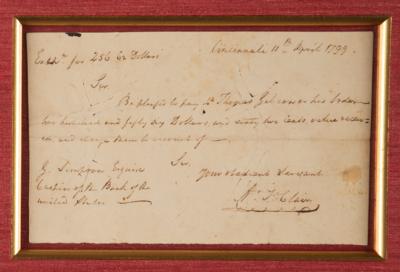 Exch.ᵉ for 256 62 Dollars
Cincinnati 11th April 1799.
Sir
Be pleased to pay Thomas or his order
two hundred and fifty six Dollars and sixty two cents value recei-
ved, and charge them to account of —
Sir
G. Simpson Esquire
your obedient Servant
Cashier of the Bank of the
Ar. St. Clair
united States